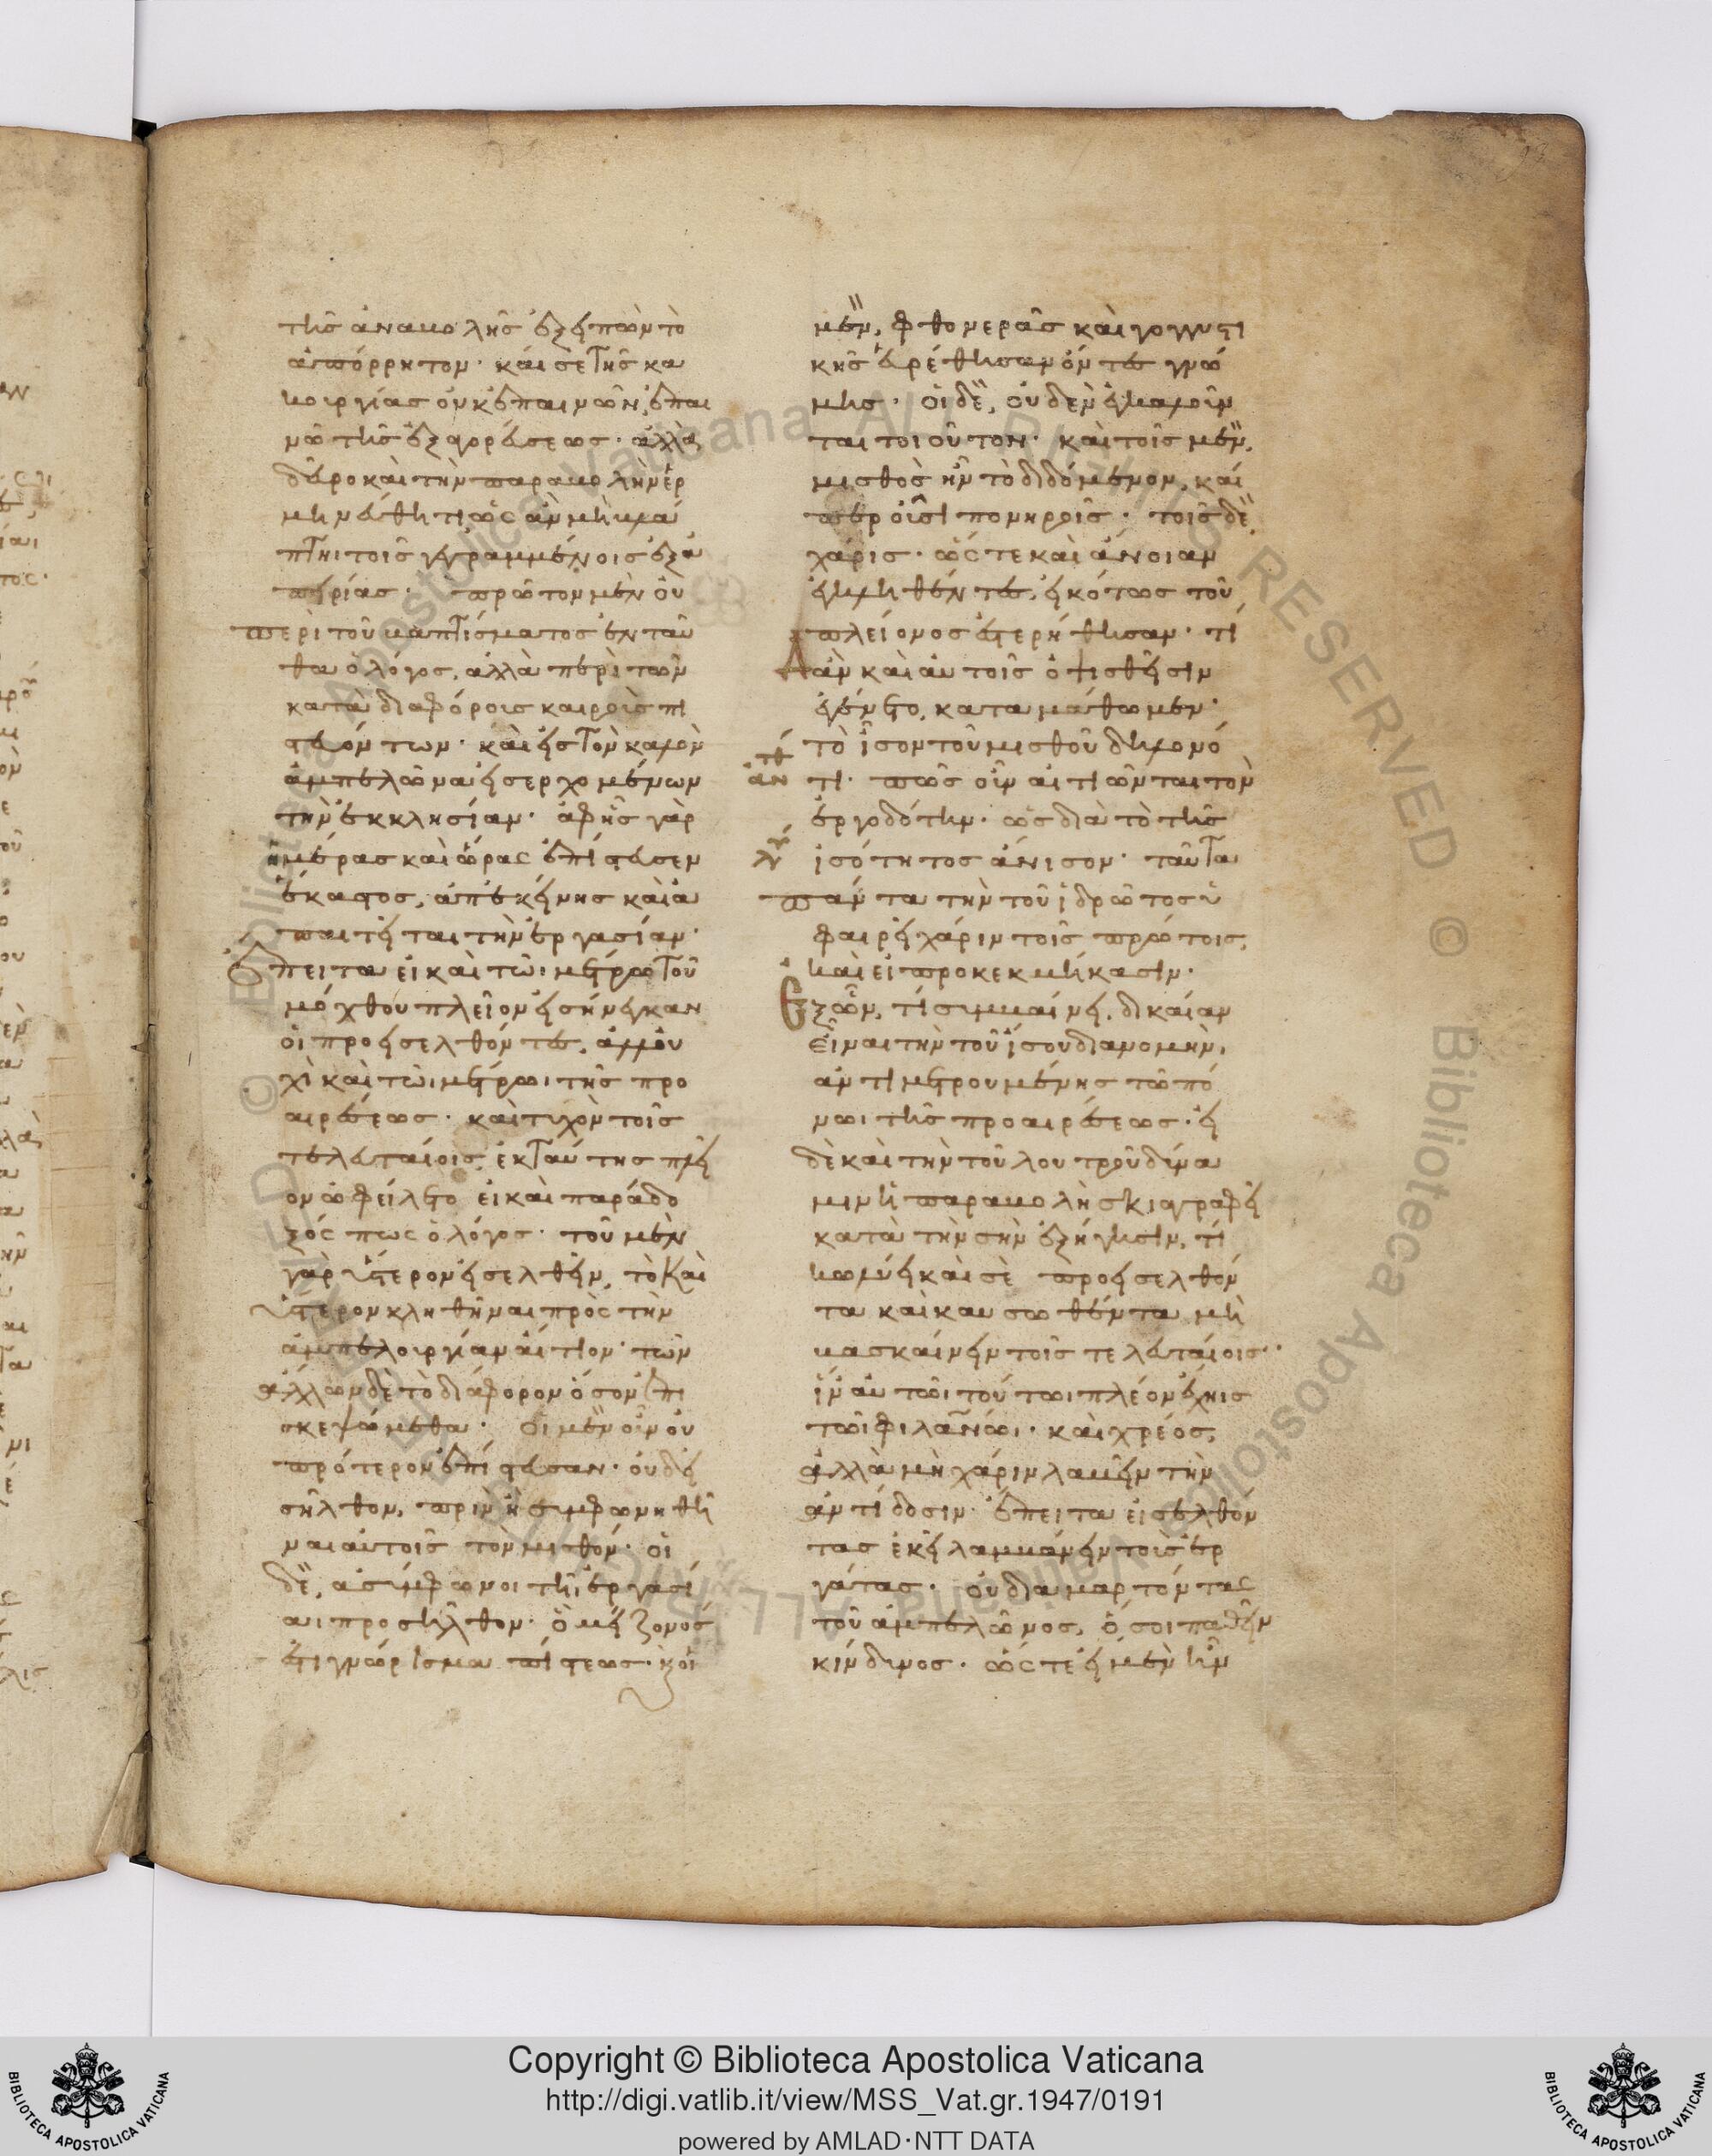 τῆς ἀναβολῆς ἐξειπὼν τὸ
ἀπόρρητον· καί σε τῆς κα
κουργίας οὐκ ἐπαινῶν, ἐπαι
νῶ τῆς ἐξαγορεύσεως· ἀλλὰ
δεῦρο καὶ τὴν παραβολὴν ἑρ
μηνεύθητι πῶς ἂν μὴ βλά
πτηι τοῖς γεγραμμένοις ἐξ ἀ
πειρίας· πρῶτον μὲν οὐ
περὶ τοῦ βαπτίσματος ἐνταῦ
θα ὁ λόγος, ἀλλὰ περὶ τῶν
κατὰ διαφόροις καιροῖς πι
στευόντων· καὶ εἰς τὸν καλὸν
ἀμπελῶνα εἰσερχομένων
τὴν ἐκκλησίαν· ἀφ' ἧς γὰρ
ἡμέρας καὶ ὥρας ἐπίστευσεν
ἕκαστος, ἀπ' ἐκείνης καὶ ἀ
παιτεῖται τὴν ἐργασίαν·
Ἔπειτα εἰ καὶ τῶι μέτρωι τοῦ
μόχθου πλεῖον εἰσήνεγκαν
οἱ προεισελθόντες, ἀλλ' οὐ
χὶ καὶ τῶι μέτρωι τῆς προ
αιρέσεως· καὶ τυχὸν τοῖς
τελευταίοις ἐκ ταύτης πλεῖ
ον ὠφείλετο εἰ καὶ παράδο
ξός πως ὁ λόγος· τοῦ μὲν
γὰρ ὕστερον εἰσελθεῖν, τὸ καὶ
ὕστερον κληθῆναι πρὸς τὴν
ἀμπελουργίαν αἴτιον· τῶν
ἄλλων δὲ τὸ διάφορον ὅσον ἐπι
σκεψώμεθα· Οἱ μὲν οὖν οὐ
πρότερον ἐπίστευσαν· οὐδ' εἰ
σῆλθον, πρὶν ἢ συμφωνηθῆ
ναι αὐτοῖς τὸν μισθόν· οἱ
δὲ, ἀσύμφωνοι τῆι ἐργασί
αι προσῆλθον· ὃ μείζονός
ἐστι γνώρισμα πίστεως· καὶ οἱ
μὲν, φθονερᾶς καὶ γογγυστι
κῆς εὑρέθησαν ὄντες γνώ
μης· οἱ δὲ, οὐδὲν ἐγκαλοῦν
ται τοιοῦτον· καὶ τοῖς μὲν,
μισθὸς ἦν τὸ διδόμενον, καί
περ οὖσι πονηροῖς· τοῖς δὲ
χάρις· ὥστε καὶ ἄνοιαν
ἐγκληθέντες, εἰκότως τοῦ
πλείονος ἐστερήθησαν· τί
δ' ἂν καὶ αὐτοῖς ὀφθεῖσιν
ἐγένετο, καταμάθωμεν·
τὸ ἴσον τοῦ μισθοῦ δηλονό
τι· πῶς οὖν αἰτιῶνται τὸν
ἐργοδότην· ὡς διὰ τὸ τῆς
ἰσότητος ἄνισον· ταῦτα
πάντα τὴν τοῦ ἱδρῶτος ὑ
φαιρεῖ χάριν τοῖς πρώτοις,
καὶ εἰ προκεκμήκασιν·
Ἐξ ὧν, τί συμβαίνει, δικαίαν
εἶναι τὴν τοῦ ἴσου διανομὴν,
ἀντιμετρουμένης τῶ πό
νωι τῆς προαιρέσεως· εἰ
δὲ καὶ τὴν τοῦ λουτροῦ δύνα
μιν ἡ παραβολὴ σκιαγραφεῖ
κατὰ τὴν σὴν ἐξήγησιν, τί
κωλύει καὶ σὲ προεισελθόν
τα καὶ καυσωθέντα μὴ
βασκαίνειν τοῖς τελευταίοις·
ἵν' αὐτῶι τούτωι πλέον ἔχηις
τῶι φιλανῶι· καὶ χρέος,
ἀλλὰ μὴ χάριν λαβεῖν τὴν
ἀντίδοσιν· ἔπειτα εἰσελθόν
τας ἐκεῖ λαμβάνειν τοὺς ἐρ
γάτας· οὐ διαμαρτόντας
τοῦ ἀμπελῶνος, ὅ σοι παθεῖν
κίνδυνος· ὥστε εἰ μὲν ἦν